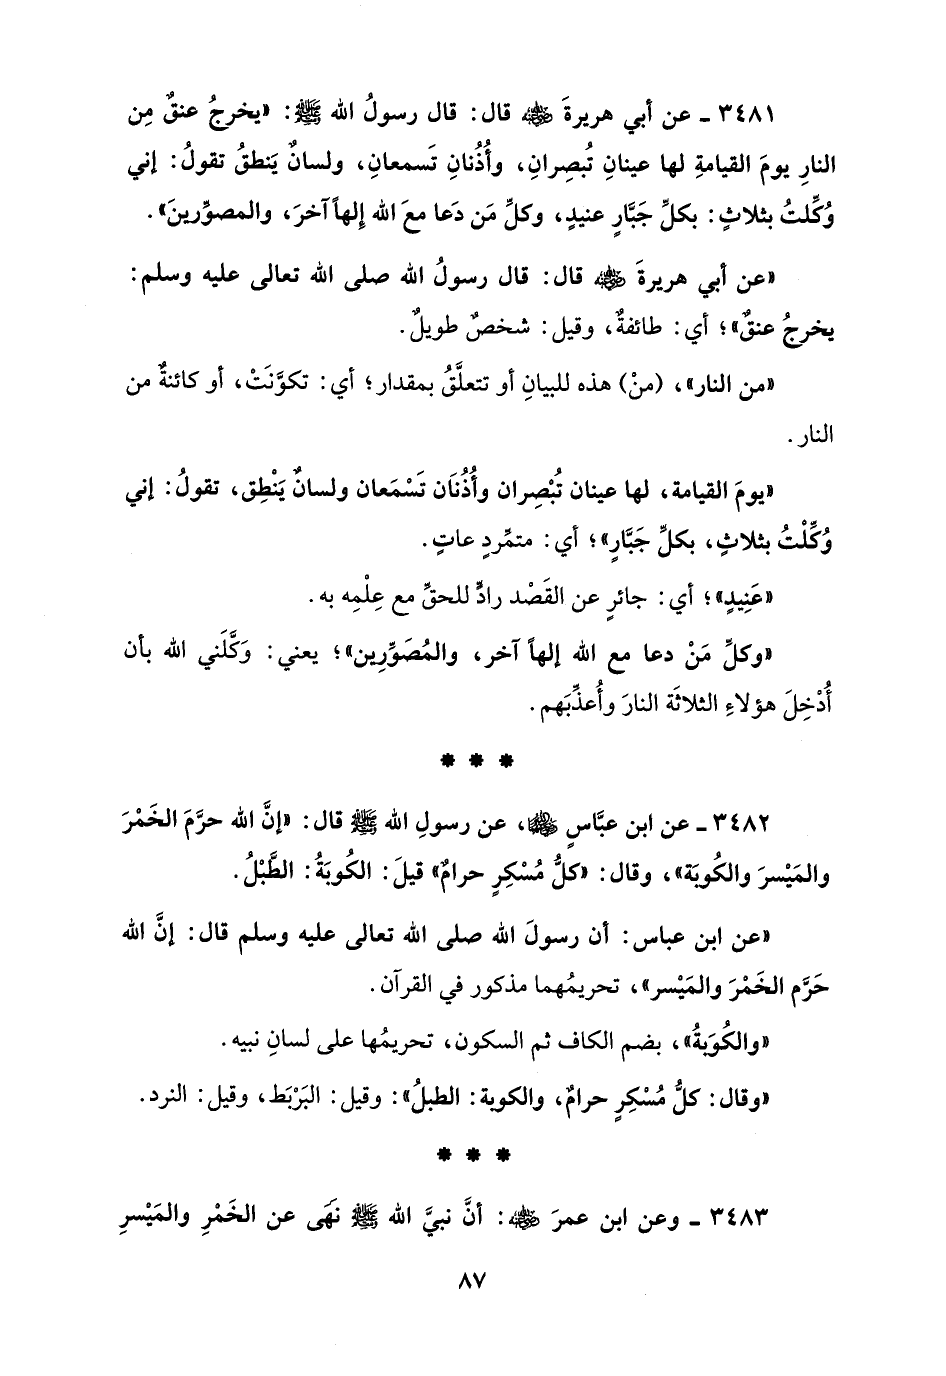 ٣٤٨١ ـ عن أبي هريرةَ ﷺ قال: قال رسولُ الله ﷺ: «يخرجُ عنقٌ مِن
النارِ يومَ القيامةِ لها عينانِ تُبصِرانِ، وأُذُنانِ تَسمعانِ، ولسانٌ يَنطقُ تقولُ: إني
وُكِّلتُ بثلاثٍ: بكلِّ جَبَّارٍ عنيدٍ، وكلِّ مَن دَعا معَ الله إلهاً آخرَ، والمصوِّرينَ».
«عن أبي هريرةَ رضي الله عنه قال: قال رسولُ الله صلى الله تعالى عليه وسلم:
يخرجُ عنقٌ»؛ أي: طائفةٌ، وقيل: شخصٌ طويلٌ.
«من النار»، (منْ) هذه للبيانِ أو تتعلَّقُ بمقدار؛ أي: تكوَّنَتْ، أو كائنةٌ من
النار.
«يومَ القيامة، لها عينان تُبْصِران وأُذُنَان تَسْمَعان ولسانٌ يَنْطِق، تقولُ: إني
وُكِّلْتُ بثلاثٍ، بكلِّ جَبَّارٍ»؛ أي: متمِّردٍ عاتٍ.
«عَنِيدٍ»؛ أي: جائرٍ عن القَصْد رادٍّ للحقِّ مع عِلْمِه به.
«وكلِّ مَنْ دعا مع الله إلهاً آخر، والمُصَوِّرِين»؛ يعني: وَكَّلَني الله بأن
أُدْخِلَ هؤلاءِ الثلاثَة النارَ وأُعذِّبَهم.
* * *
٣٤٨٢ ـ عن ابن عبَّاسٍ رضي الله عنهما، عن رسولِ الله ﷺ قال: «إنَّ الله حرَّمَ الخَمْرَ
والمَيْسرَ والكُوبَة»، وقال: «كلُّ مُسْكِرٍ حرامٌ» قيلَ: الكُوبَةُ: الطَّبْلُ.
«عن ابن عباس: أن رسولَ الله صلى الله تعالى عليه وسلم قال: إنَّ الله
حَرَّم الخَمْرَ والمَيْسر»، تحريمُهما مذكور في القرآن.
«والكُوَبةُ»، بضم الكاف ثم السكون، تحريمُها على لسانِ نبيه.
«وقال: كلُّ مُسْكِرٍ حرامٌ، والكوبة: الطبلُ»: وقيل: البَرْبَط، وقيل: النرد.
* * *
٣٤٨٣ ـ وعن ابن عمرَ رضي الله عنه: أنَّ نبيَّ الله ﷺ نهَى عن الخَمْرِ والمَيْسرِ
٨٧